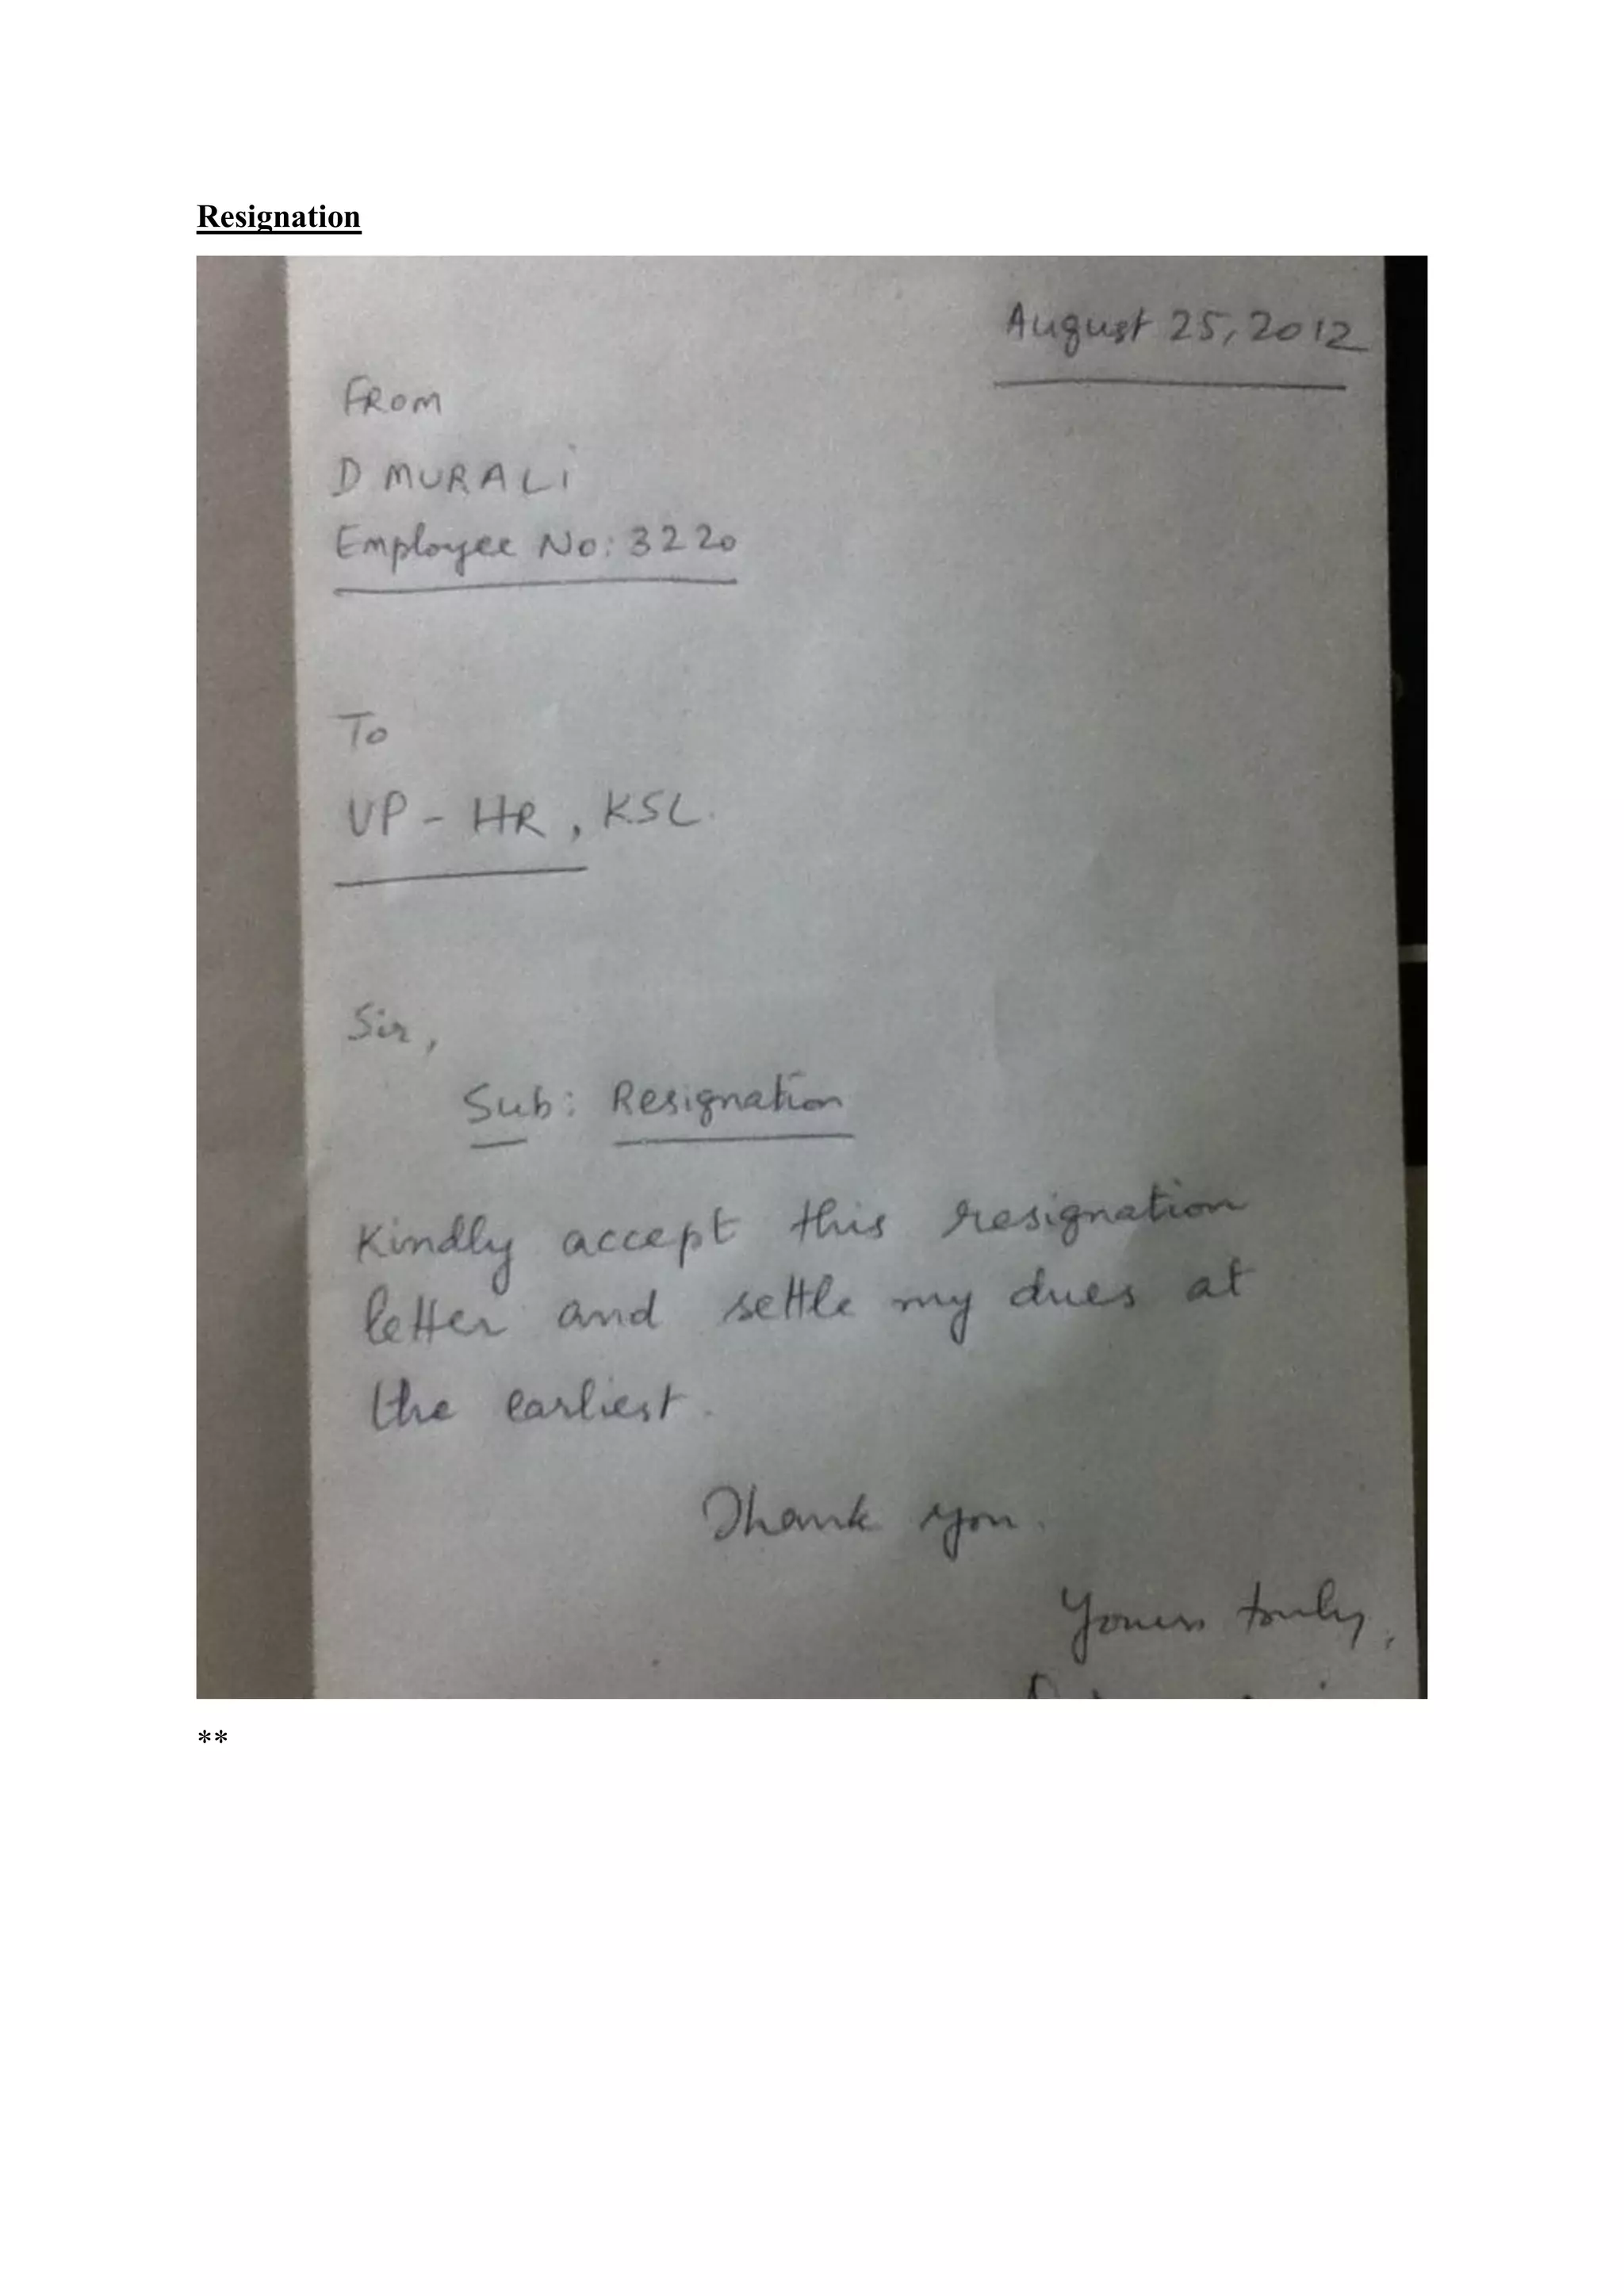 Resignation
August 25, 2012
FROM
D MURALI
Employee No: 3220
To
VP - HR, KSL.
Sir,
Sub: Resignation
Kindly accept this resignation
letter and settle my dues at
the earliest.
Thank you.
Yours truly,
**